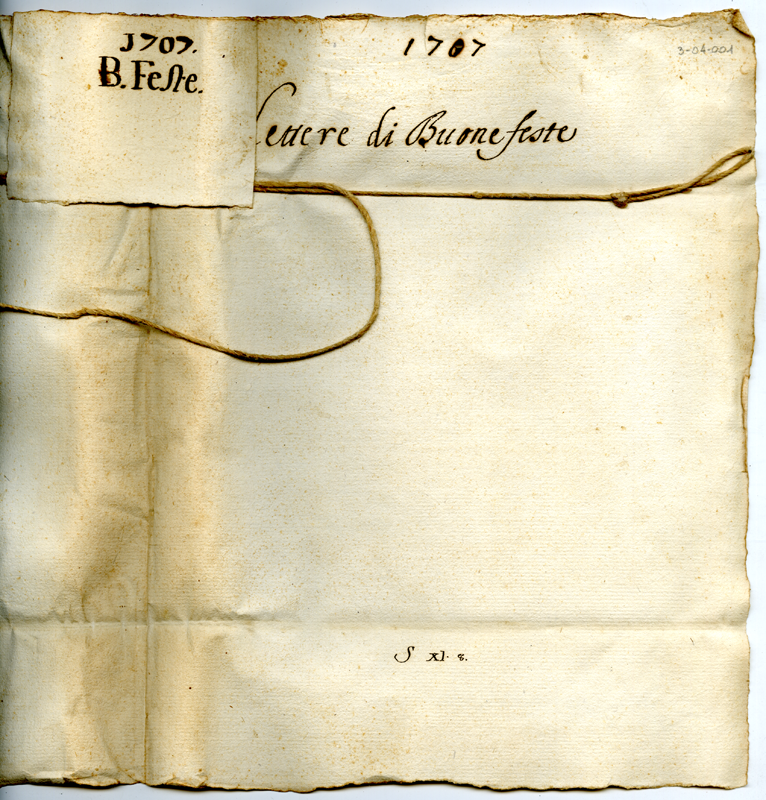 1707.
B. Feste.
1707
3-04-001
Lettere di Buone feste
S XI. 8.